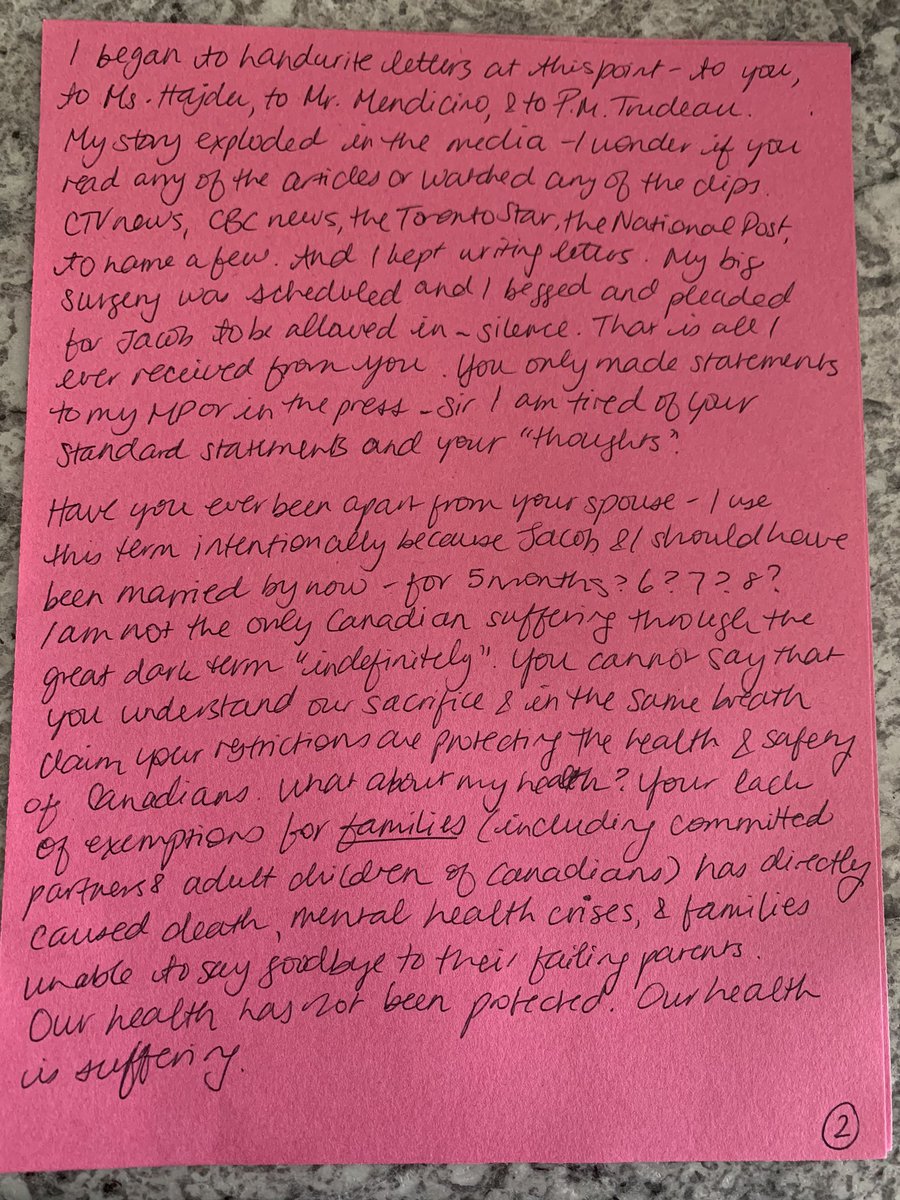 I began to handwrite letters at this point - to you,
to Ms. Hajdu, to Mr. Mendicino, & to P.M. Trudeau.
My story exploded in the media - I wonder if you
read any of the articles or watched any of the clips.
CTV news, CBC news, the Toronto Star, the National Post,
to name a few. And I kept writing letters. My big
surgery was scheduled and I begged and pleaded
for Jacob to be allowed in - silence. That is all I
ever received from you. You only made statements
to my MP or in the press - Sir I am tired of your
standard statements and your "thoughts".
Have you ever been apart from your spouse - I use
this term intentionally because Jacob & I should have
been married by now - for 5 months? 6? 7? 8?
I am not the only Canadian suffering through the
great dark term "indefinitely". You cannot say that
you understand our sacrifice & in the same breath
claim your restrictions are protecting the health & safety
of Canadians. What about my health? Your lack
of exemptions for families (including committed
partners & adult children of Canadians) has directly
caused death, mental health crises, & families
unable to say goodbye to their failing parents.
Our health has not been protected. Our health
is suffering.
2